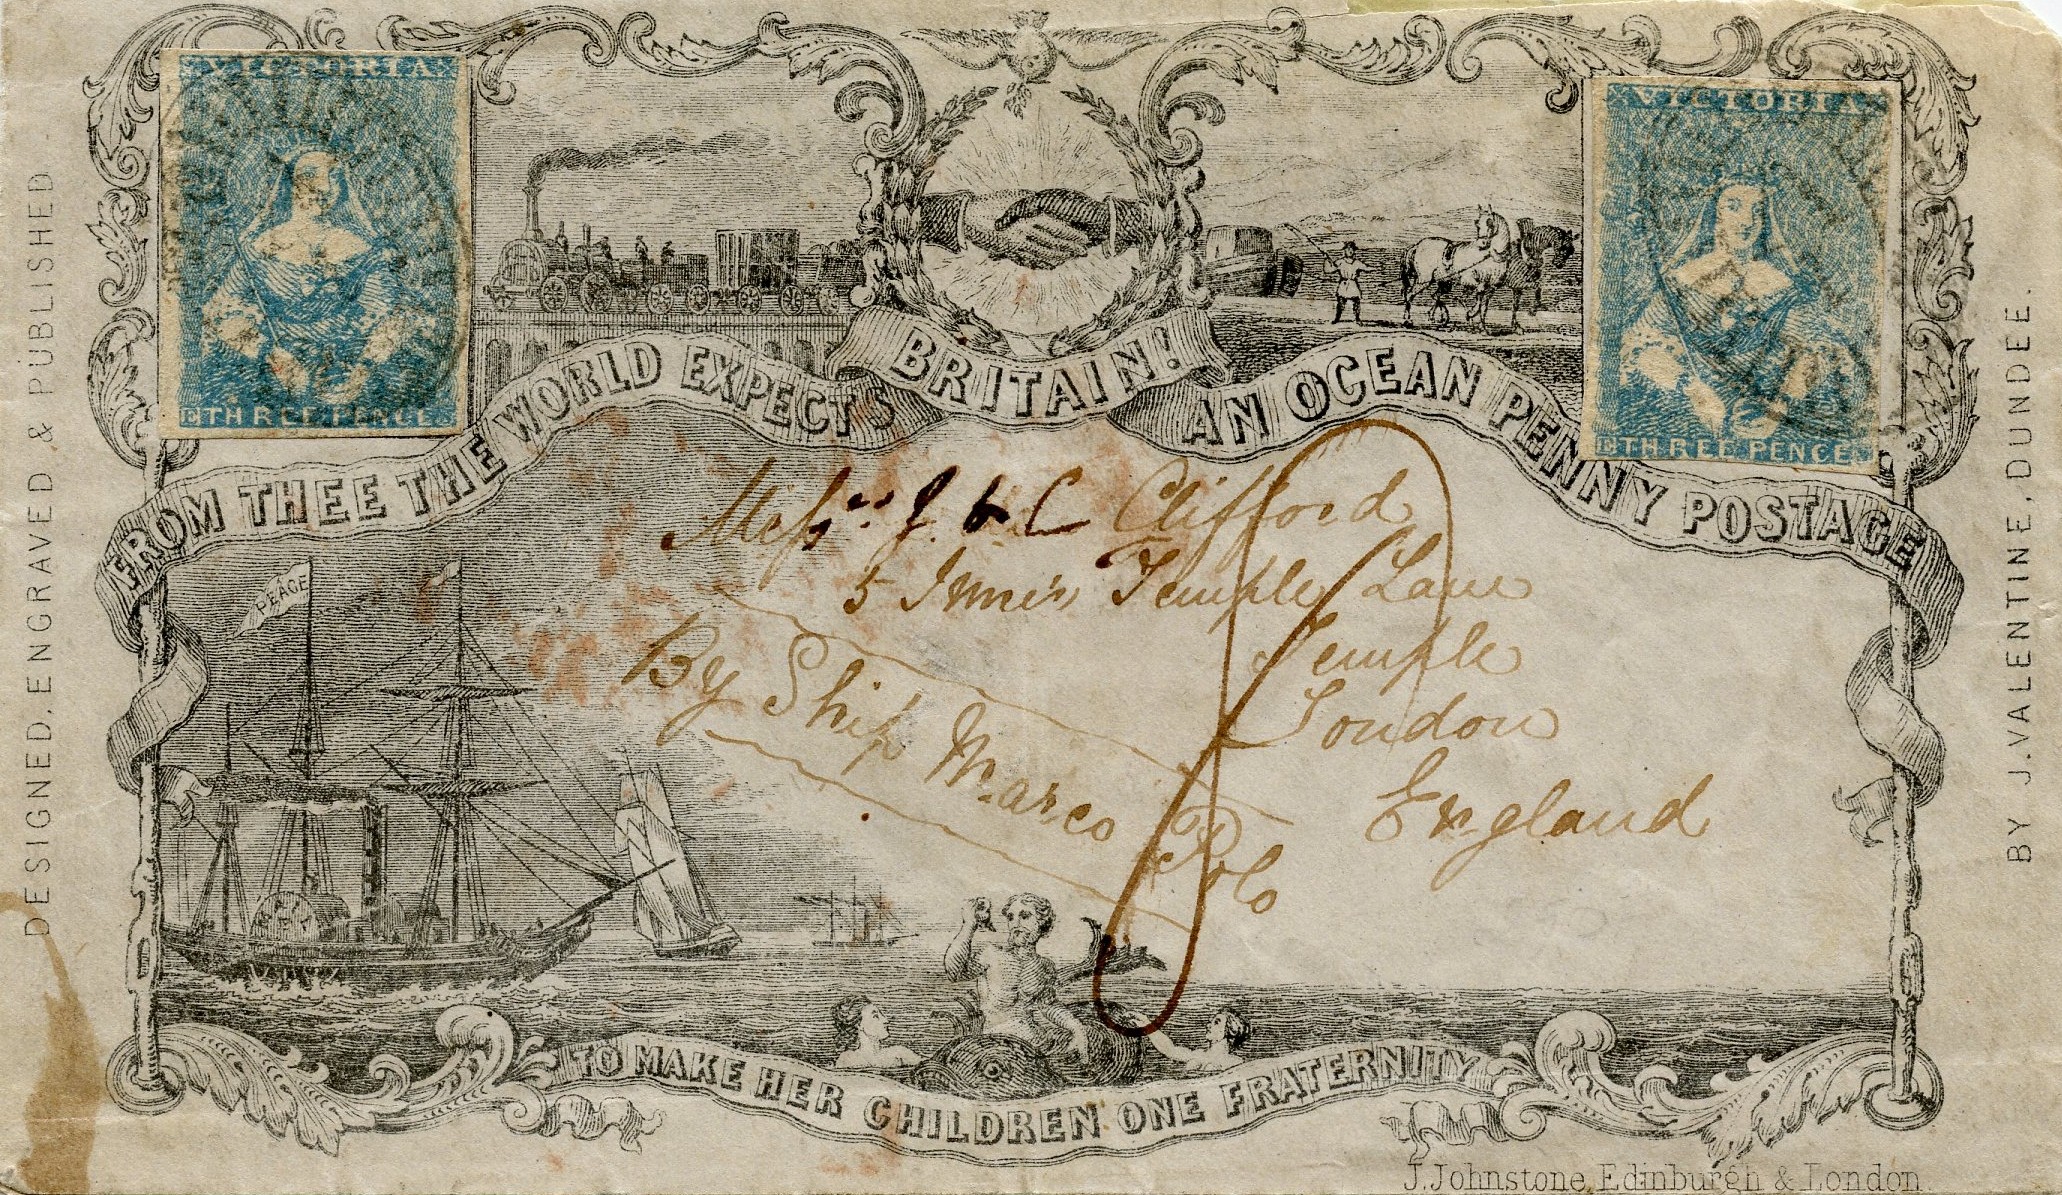 VICTORIA
THREE PENCE
VICTORIA
THREE PENCE
FROM THEE THE WORLD EXPECTS BRITAIN! AN OCEAN PENNY POSTAGE
DESIGNED, ENGRAVED & PUBLISHED
BY J. VALENTINE, DUNDEE.
PEACE
Messrs J. & C Clifford
5 Inner Temple Lane
Temple
London
England
By Ship Marco Polo
TO MAKE HER CHILDREN ONE FRATERNITY
J. Johnstone, Edinburgh & London.